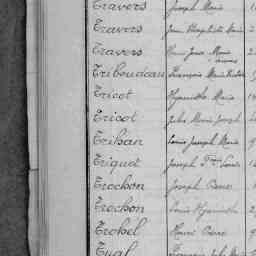 Travers Joseph Marie
Travers Jean Baptiste Marie
Travers Henri Jean Marie
Triboudeau François Marie
Tricot Hyacinthe Marie
Tricot Jules Marie Joseph
Trihan Louis Joseph Marie
Triquet Joseph Louis
Trochon Joseph
Trochon Louis Hyacinthe
Trohel Henri
Tual François Jules Marie